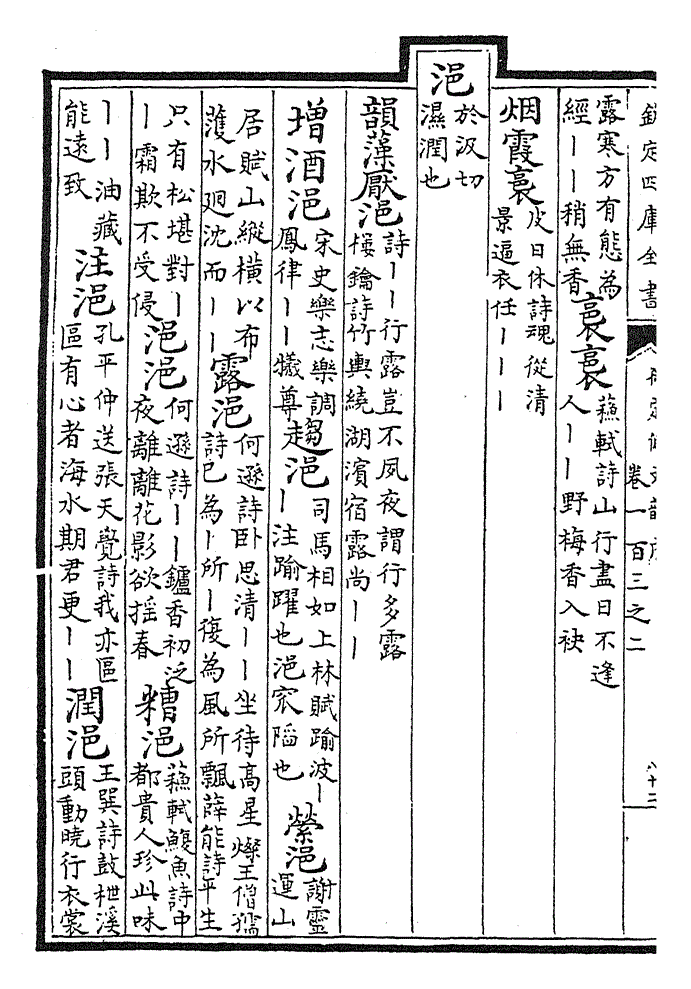 欽定四庫全書
卷一百三之二
露寒方有態為
經丨丨稍無香
裛裛
蘇軾詩山行盡日不逢
人丨丨野梅香入袂
烟霞裛
皮日休詩魂從清
景逼衣任丨丨丨
浥
於汲切
濕潤也
韻藻厭浥
詩丨丨行露豈不夙夜謂行多露
樓鑰詩竹輿繞湖濱宿露尚丨丨
增酒浥
宋史樂志樂調
鳳律丨丨犧尊
趨浥
司馬相如上林賦踰波丨
丨注踰躍也浥窊陷也
縈浥
謝靈
運山
居賦山縱橫以布
濩水廻沈而丨丨
露浥
何遜詩卧思清丨丨坐待高星燦王僧孺
詩已為丨所丨復為風所飄薛能詩平生
只有松堪對丨
丨霜欺不受侵
浥浥
何遜詩丨丨鑪香初泛
夜離離花影欲揺春
糟浥
蘇軾鰒魚詩中
都貴人珍此味
丨丨油藏
能遠致
注浥
孔平仲送張天覺詩我亦區
區有心者海水期君更丨丨
潤浥
王巽詩鼓枻溪
頭動曉行衣裳